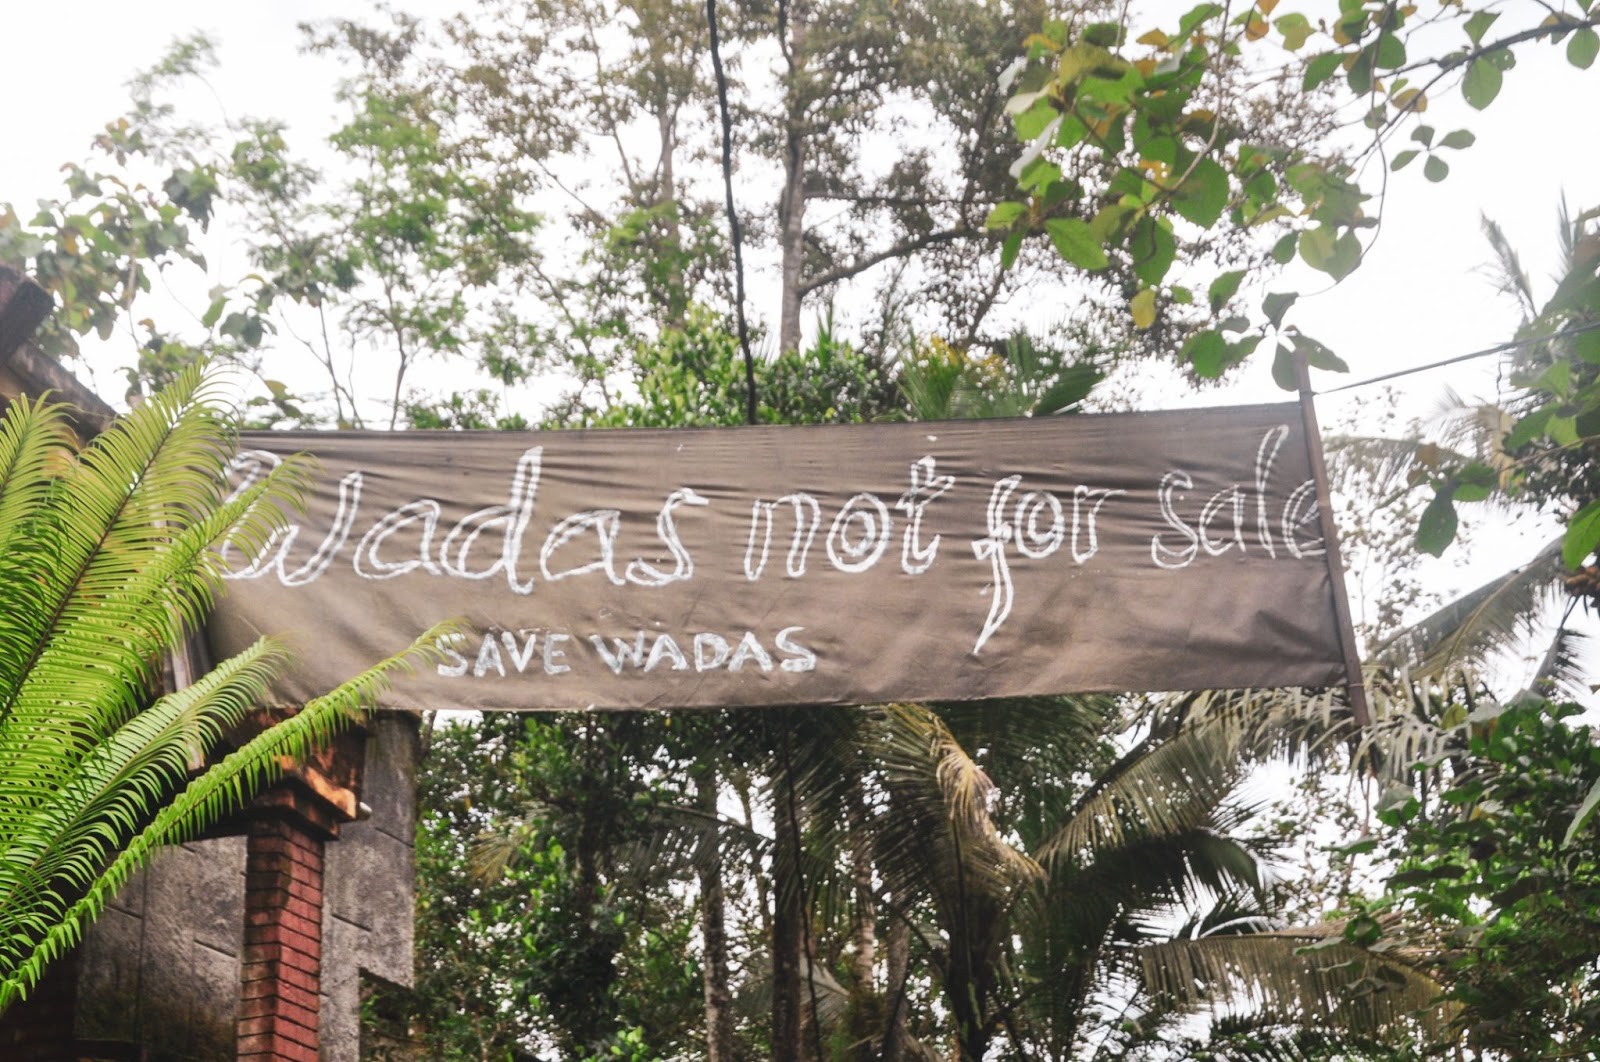 Wadas not for sale
SAVE WADAS